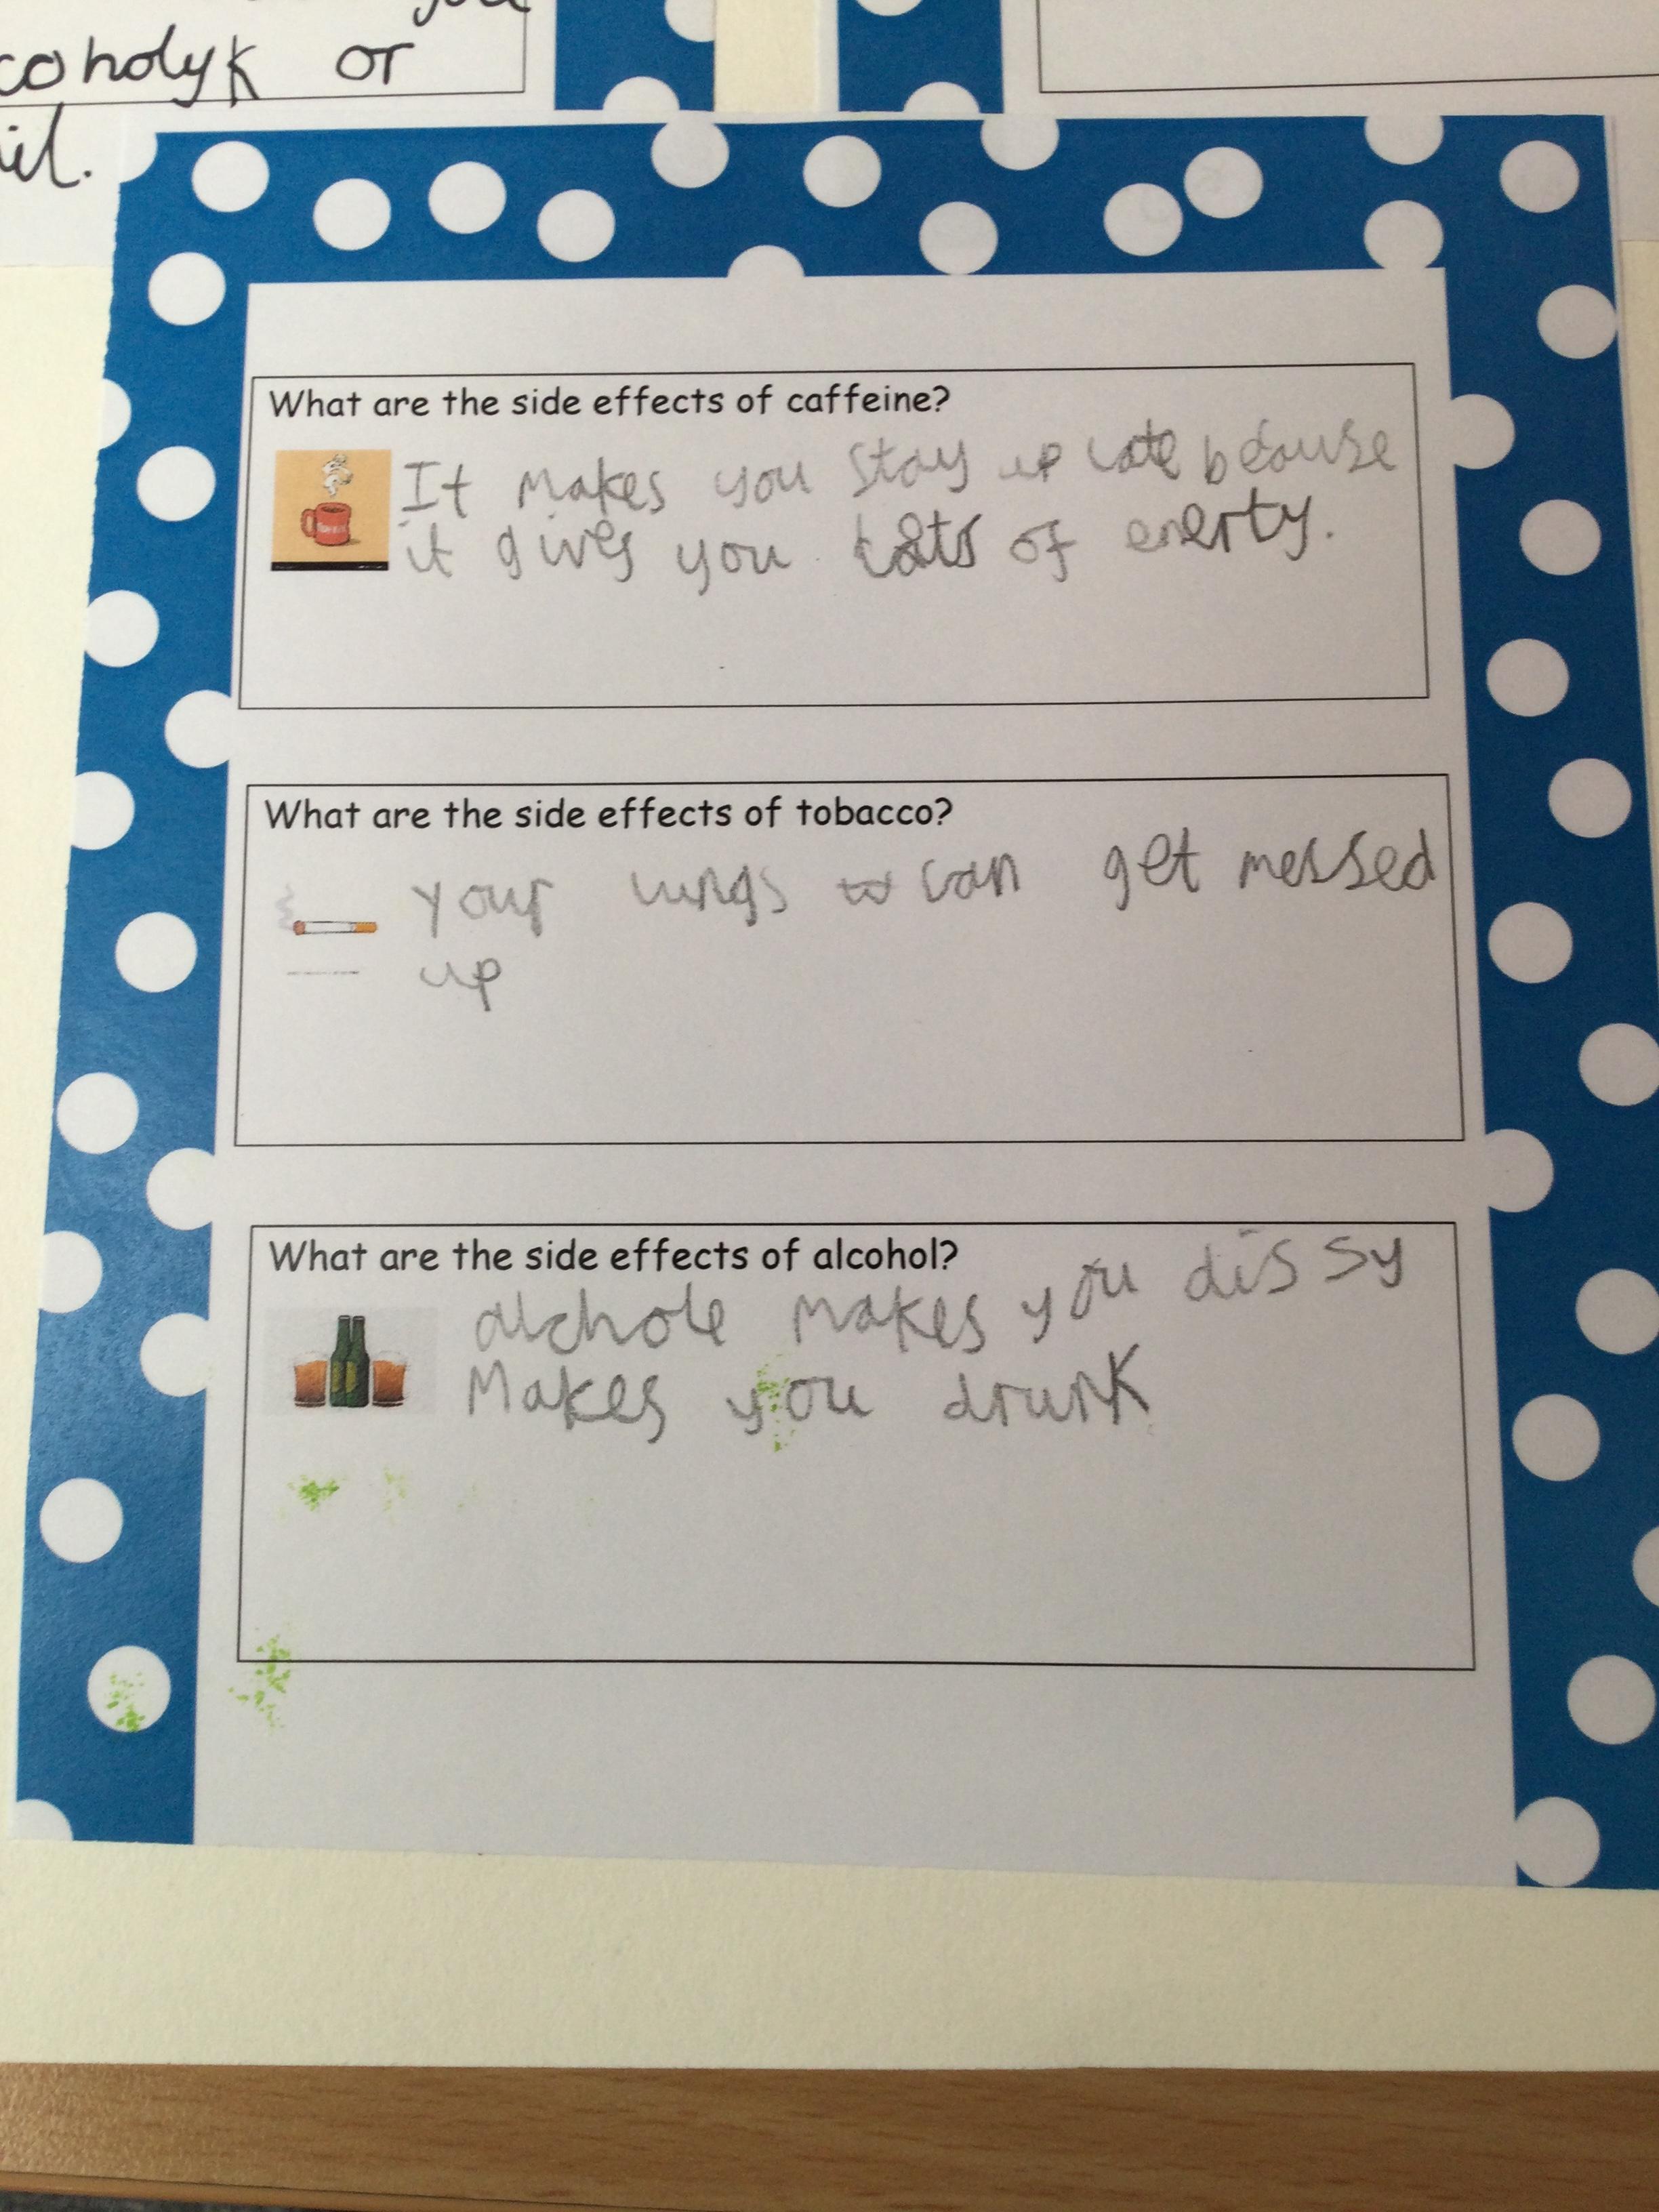 or
What are the side effects of caffeine?
It makes you stay up late because
it gives you lots of enerty.
What are the side effects of tobacco?
your lungs can get messed
up
What are the side effects of alcohol?
alchole makes you dissy
Makes you drunk